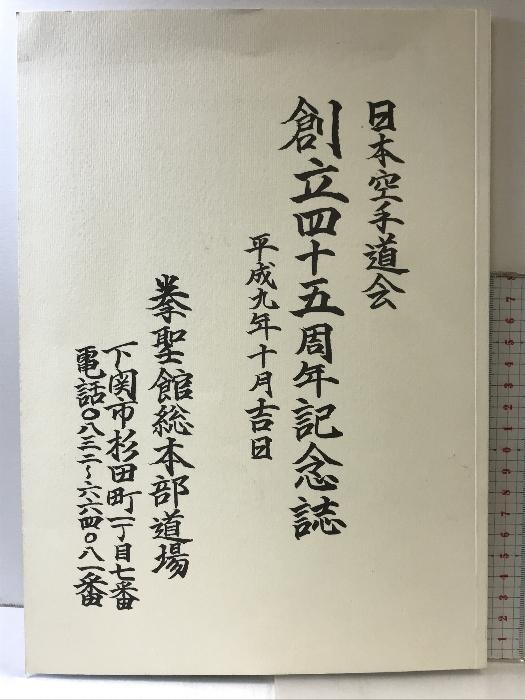 日本空手道会
創立四十五周年記念誌
平成九年十月吉日
拳聖館総本部道場
下関市杉田町一丁目七番
電話〇八三二～六六四〇八一番